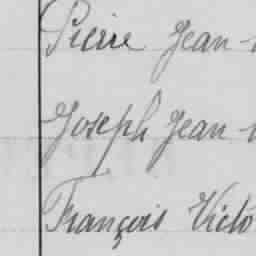 Pierre Jean
Joseph Jean
François Victo